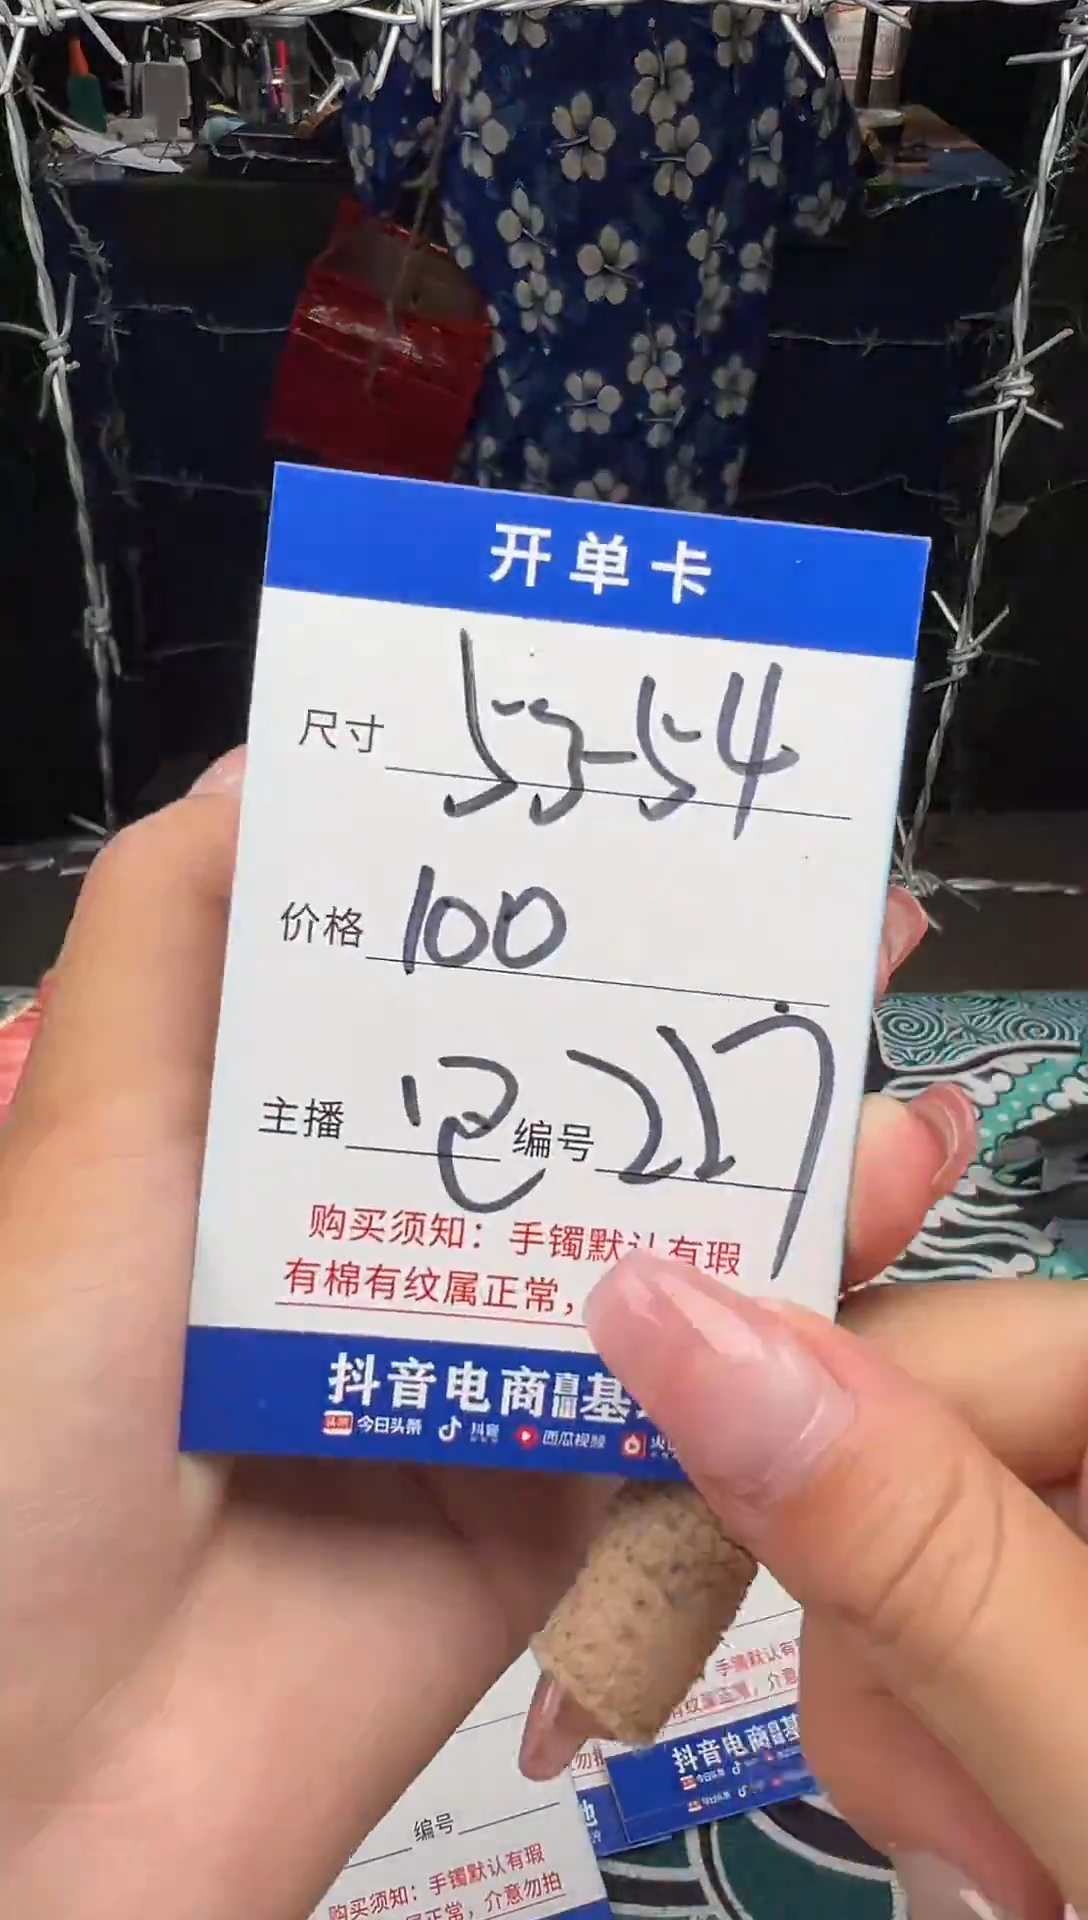 开单卡
尺寸 53-54
价格 100
主播 编号 227
购买须知：手镯默认有瑕
有棉有纹属正常，
抖音电商直播基
头条 今日头条 抖音 西瓜视频 火
手镯默认有
有纹属正常，介意
抖音电商直播基
编号
购买须知：手镯默认有瑕
属正常，介意勿拍